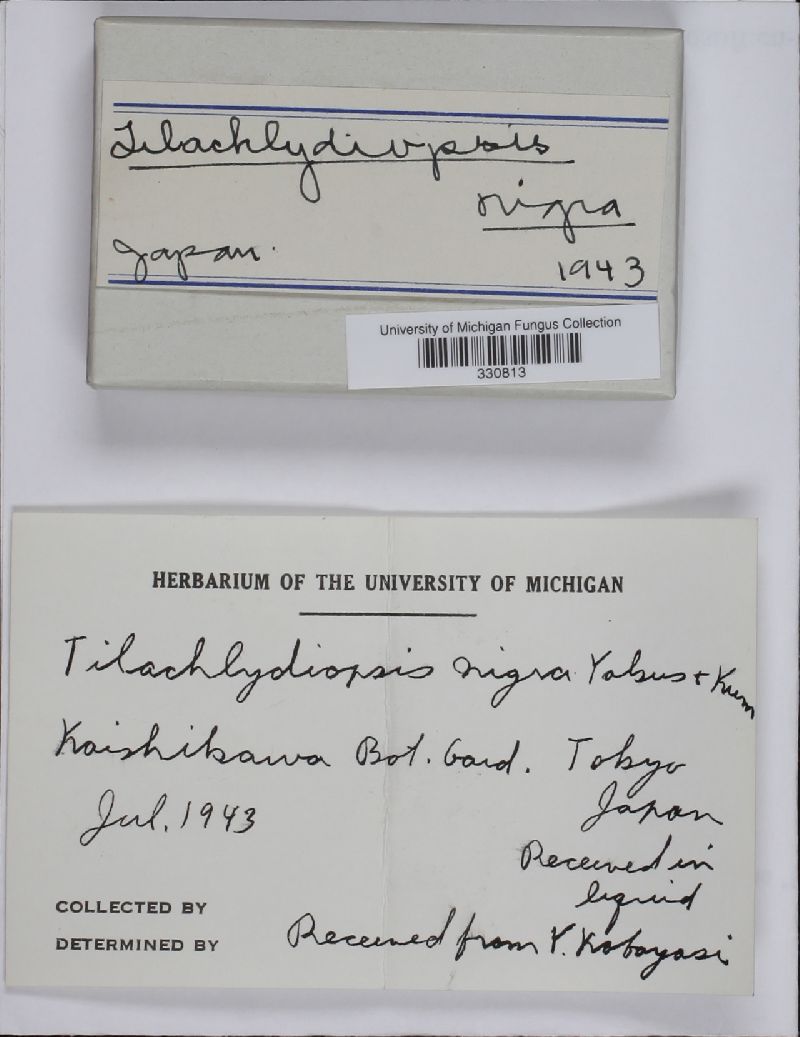 Tilachlydiopsis
nigra
Japan.
1943
University of Michigan Fungus Collection
330813
HERBARIUM OF THE UNIVERSITY OF MICHIGAN
Tilachlydiopsis nigra Yakus + Kum
Koishikawa Bot. Gard. Tokyo
Japan
Jul. 1943
Received in
liquid
COLLECTED BY
DETERMINED BY
Received from Y. Kobayasi